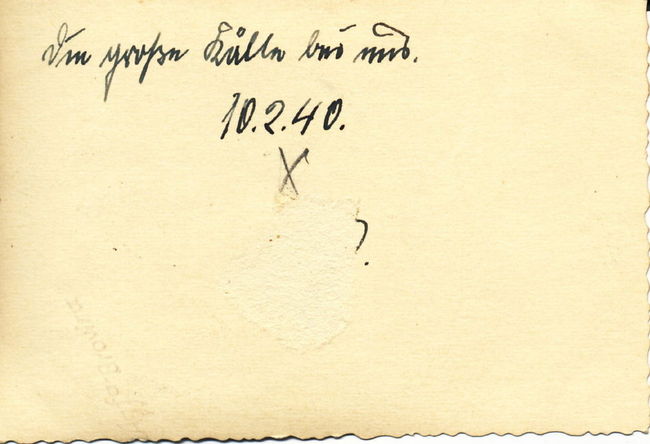 Die große Kälte bei uns.
10.2.40.
X
?